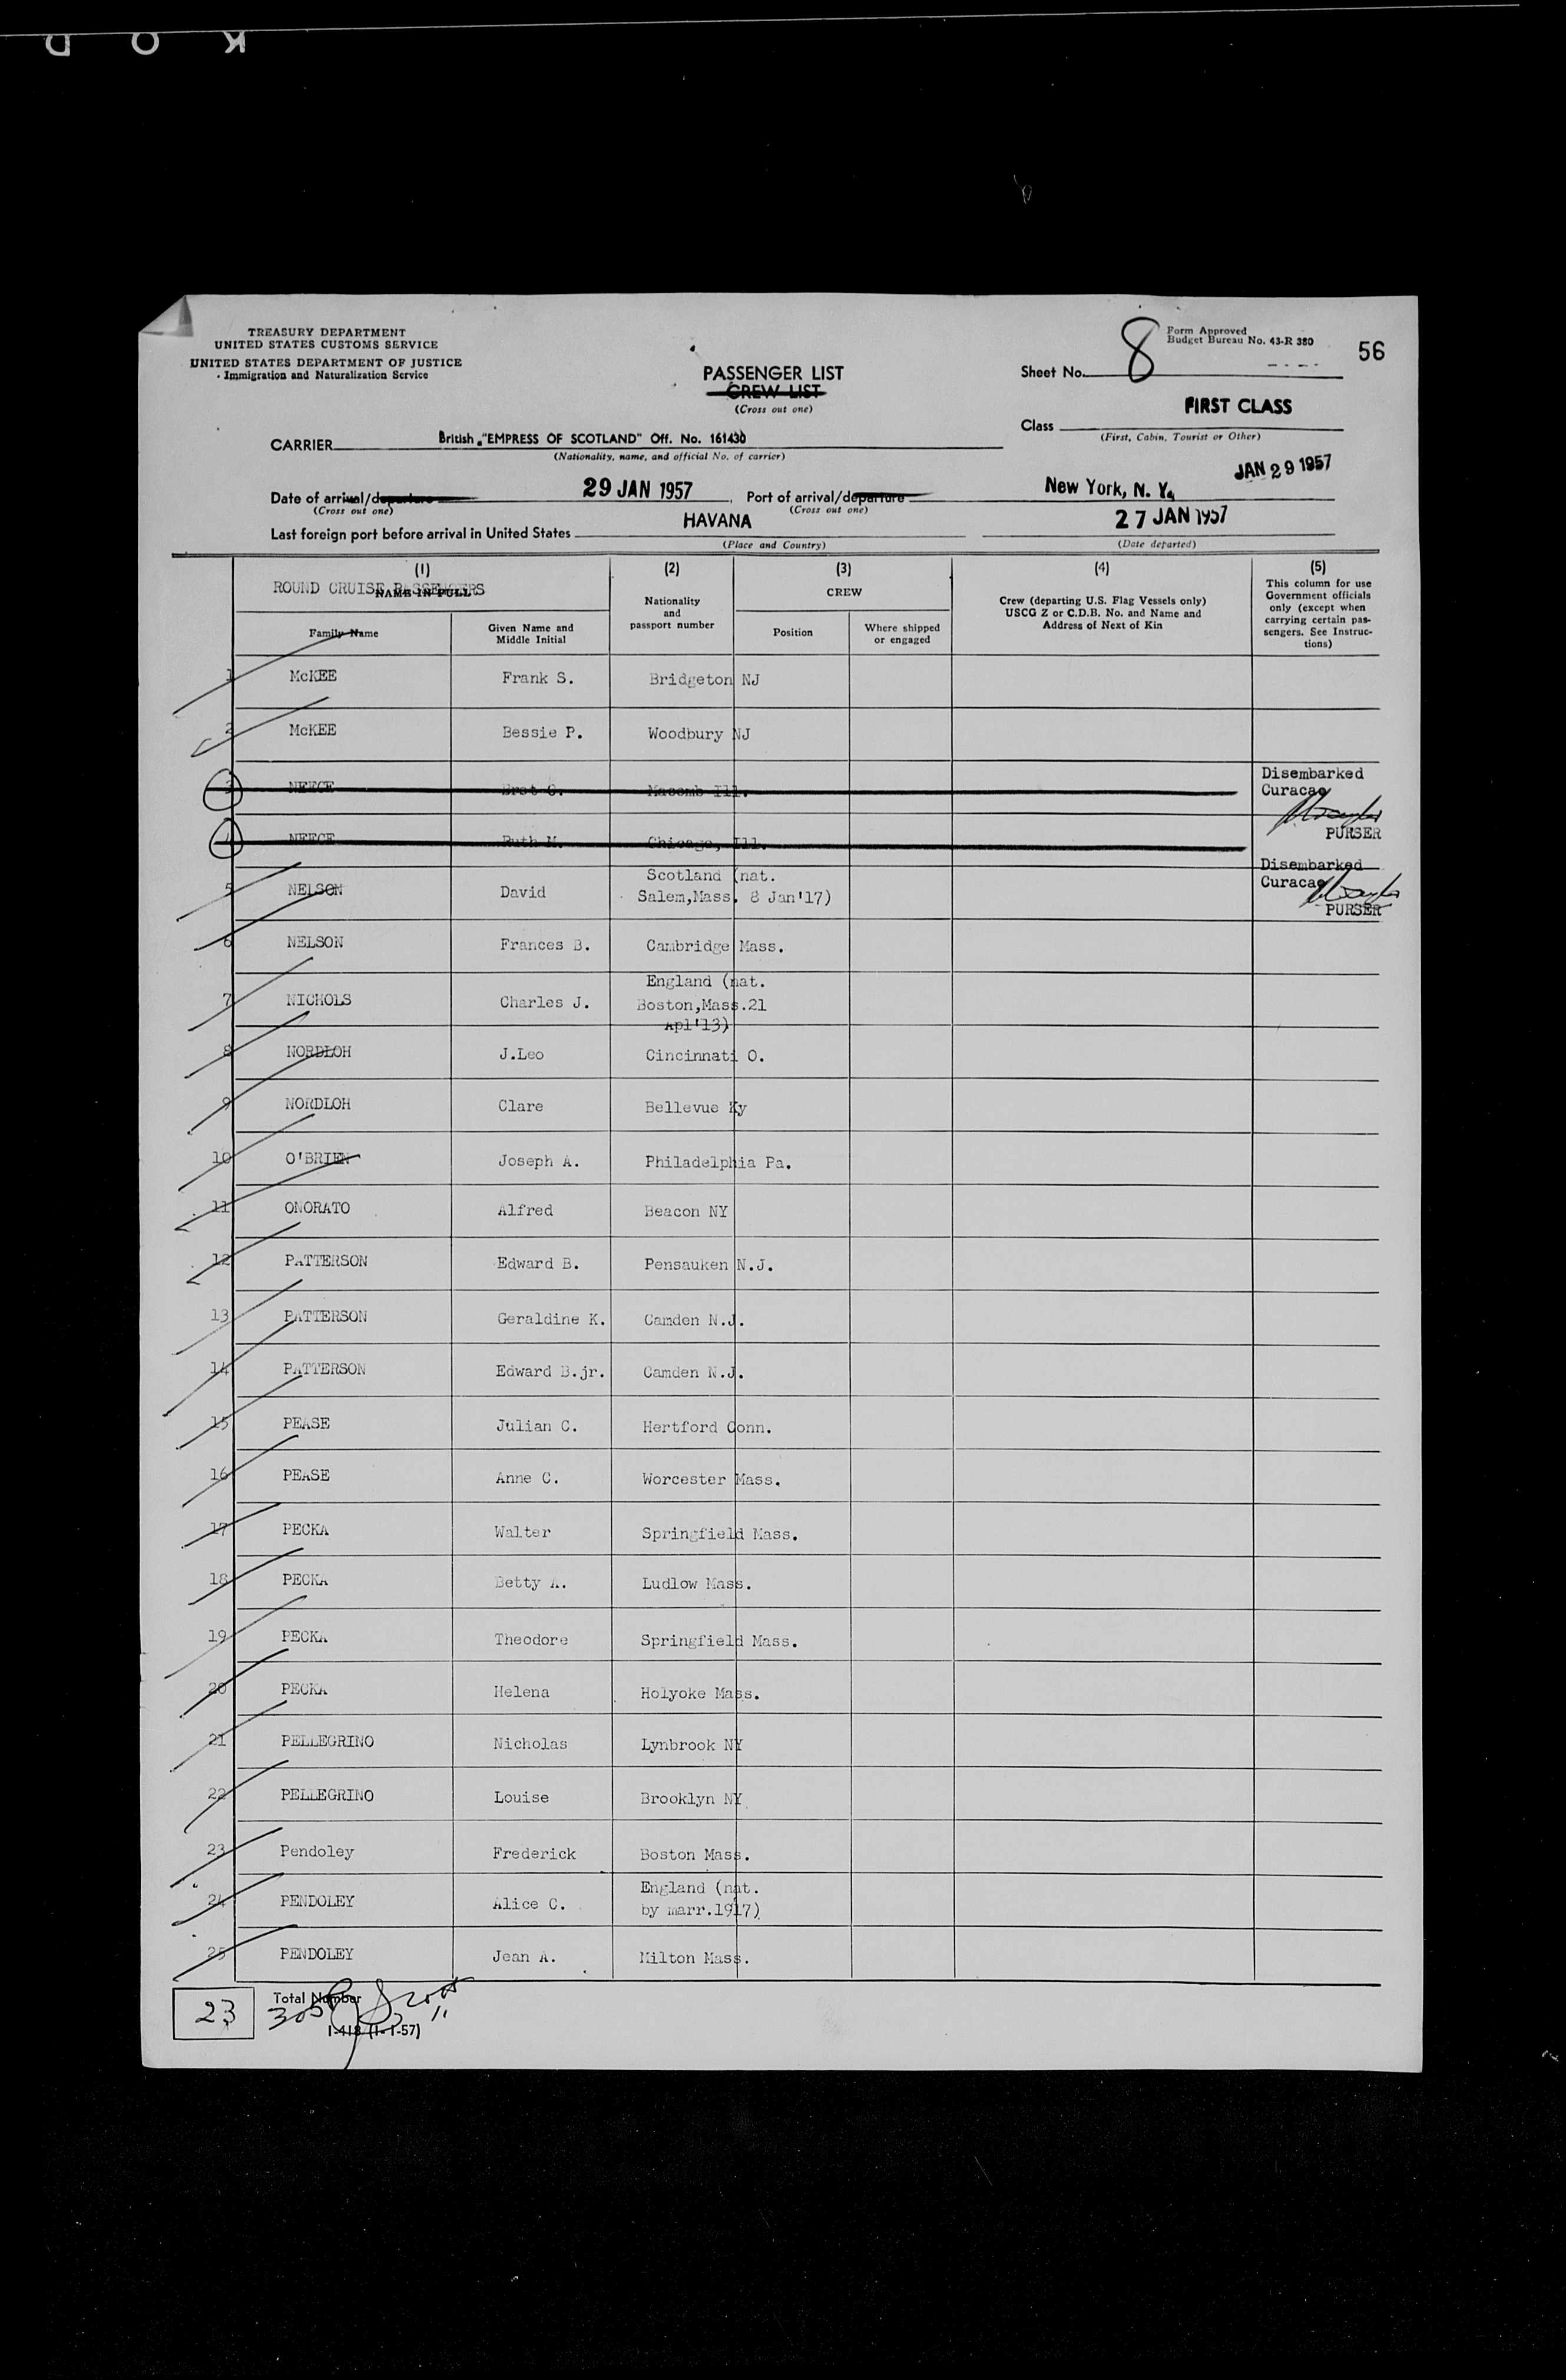 K O D
TREASURY DEPARTMENT
UNITED STATES CUSTOMS SERVICE
UNITED STATES DEPARTMENT OF JUSTICE
Immigration and Naturalization Service
PASSENGER LIST
CREW LIST
(Cross out one)
8
Form Approved
Budget Bureau No. 43-R 380
56
Sheet No.
FIRST CLASS
Class
(First, Cabin, Tourist or Other)
CARRIER British "EMPRESS OF SCOTLAND" Off. No. 161430
(Nationality, name, and official No. of carrier)
JAN 29 1957
Date of arrival/departure 29 JAN 1957 Port of arrival/departure New York, N. Y.
(Cross out one) (Cross out one)
Last foreign port before arrival in United States HAVANA 27 JAN 1957
(Place and Country) (Date departed)
(1) (2) (3) (4) (5)
ROUND CRUISE PASSENGERS
NAME IN FULL
Family Name
Given Name and
Middle Initial
Nationality
and
passport number
CREW
Position
Where shipped
or engaged
Crew (departing U.S. Flag Vessels only)
USCG Z or C.D.B. No. and Name and
Address of Next of Kin
This column for use
Government officials
only (except when
carrying certain pas-
sengers. See Instruc-
tions)
1 McKEE Frank S. Bridgeton NJ
2 McKEE Bessie P. Woodbury NJ
3 NEECE G. Macomb Ill.
Disembarked
Curacao
PURSER
4 NEECE Ruth M. Chicago, Ill.
Disembarked
Curacao
PURSER
5 NELSON David Scotland (nat.
Salem,Mass. 8 Jan'17)
6 NELSON Frances B. Cambridge Mass.
7 NICHOLS Charles J. England (nat.
Boston,Mass.21
Apl'13)
8 NORDLOH J.Leo Cincinnati O.
9 NORDLOH Clare Bellevue Ky
10 O'BRIEN Joseph A. Philadelphia Pa.
11 ONORATO Alfred Beacon NY
12 PATTERSON Edward B. Pensauken N.J.
13 PATTERSON Geraldine K. Camden N.J.
14 PATTERSON Edward B.jr. Camden N.J.
15 PEASE Julian C. Hertford Conn.
16 PEASE Anne C. Worcester Mass.
17 PECKA Walter Springfield Mass.
18 PECKA Betty A. Ludlow Mass.
19 PECKA Theodore Springfield Mass.
20 PECKA Helena Holyoke Mass.
21 PELLEGRINO Nicholas Lynbrook NY
22 PELLEGRINO Louise Brooklyn NY
23 Pendoley Frederick Boston Mass.
24 PENDOLEY Alice C. England (nat.
by marr.1917)
25 PENDOLEY Jean A. Milton Mass.
23
Total Number
I-418 (1-1-57)